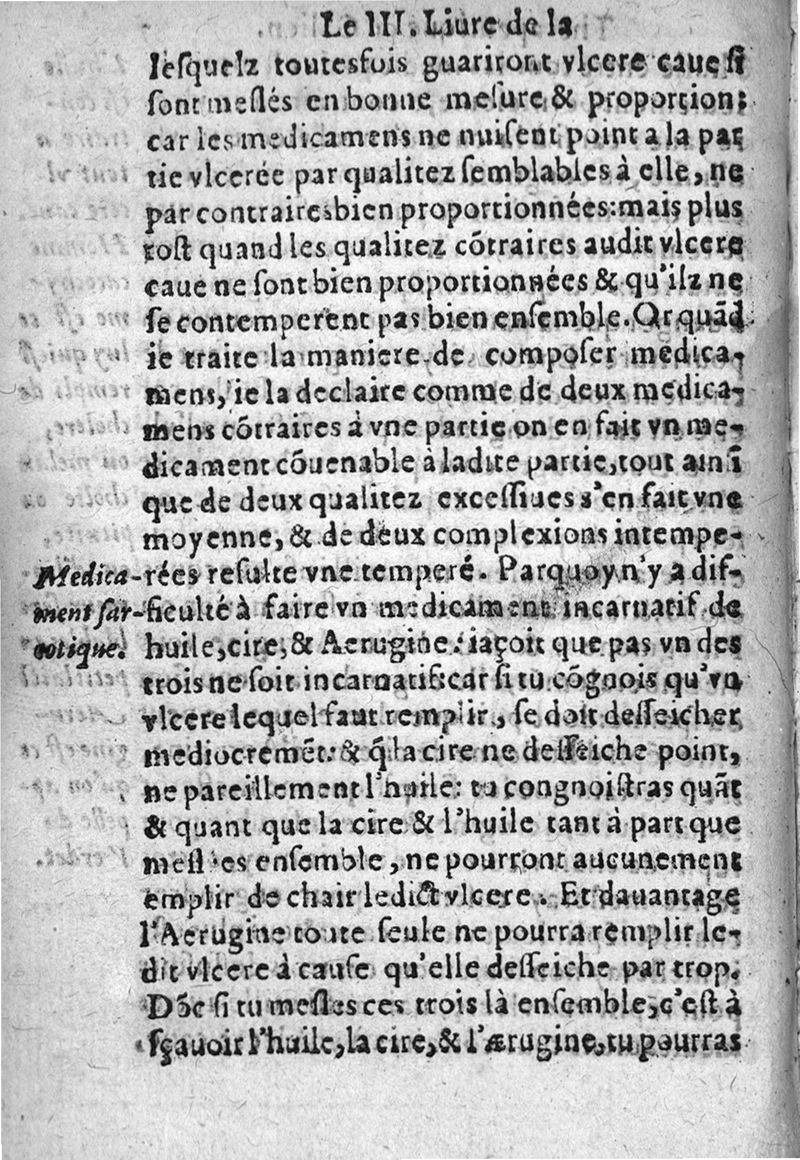 Le III. Liure de la
leſquelz toutesfois guariront vlcere caue ſi
ſont meſlés en bonne meſure & proportion:
car les medicamens ne nuiſent point a la par
tie vlcerée par qualitez ſemblables à elle, ne
par contraires bien proportionnées: mais plus
toſt quand les qualitez cõtraires audit vlcere
caue ne ſont bien proportionnées & qu'ilz ne
ſe contemperent pas bien enſemble. Or quãd
ie traite la maniere de compoſer medica-
mens, ie la declaire comme de deux medica-
mens cõtraires à vne partie on en fait vn me-
dicament cõuenable à ladite partie, tout ainſi
que de deux qualitez exceſſiues s'en fait vne
moyenne, & de deux complexions intempe-
Medica-
ment ſar-
cotique.
rées reſulte vne temperé. Parquoy n'y a dif-
ficulté à faire vn medicament incarnatif de
huile, cire, & Aerugine: iaçoit que pas vn des
trois ne ſoit incarnatif: car ſi tu cõgnois qu'vn
vlcere lequel faut remplir, ſe doit deſſeicher
mediocremẽt: & q̃ la cire ne deſſeiche point,
ne pareillement l'huile: tu congnoiſtras quãt
& quant que la cire & l'huile tant à part que
meſlées enſemble, ne pourront aucunement
emplir de chair ledict vlcere. Et dauantage
l'Aerugine toute ſeule ne pourra remplir le-
dit vlcere à cauſe qu'elle deſſeiche par trop.
Dõc ſi tu meſles ces trois là enſemble, c'eſt à
ſçauoir l'huile, la cire, & l'ærugine, tu pourras